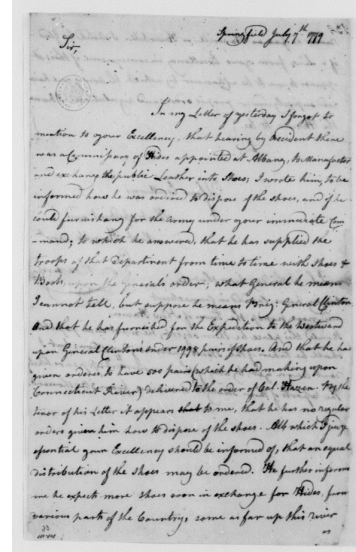 Springfield July 7th 1779
Sir,
In my Letter of yesterday I forgot to
mention to your Excellency, that hearing by Accident there
was a Commissary of Hides appointed at Albany, to Manufactor
and exchange the public Leather into Shoes; I wrote him, to be
informed how he was ordered to dispose of the shoes, and if he
could furnish any for the Army under your immediate Com-
mand; to which he answered, that he has supplied the
troops of that Department from time to time with Shoes &
Boots, upon the General's order; what General he means
I cannot tell, but suppose he means Brig: General Clinton
And that he has furnished for the Expedition to the Westward
upon General Clinton's order 1998 pair of Shoes. And that he has
given orders to have 500 pair (which he had making upon
Connecticut River) delivered to the order of Col. Hazen. By the
tenor of his Letter it appears to me, that he has no regular
orders given him how to dispose of the shoes. All which I judge
essential your Excellency should be informed of, that an equal
distribution of the shoes may be ordered. He further informs
me he expects more shoes soon in exchange for Hides, from
various parts of the Country, some as far up this river
as